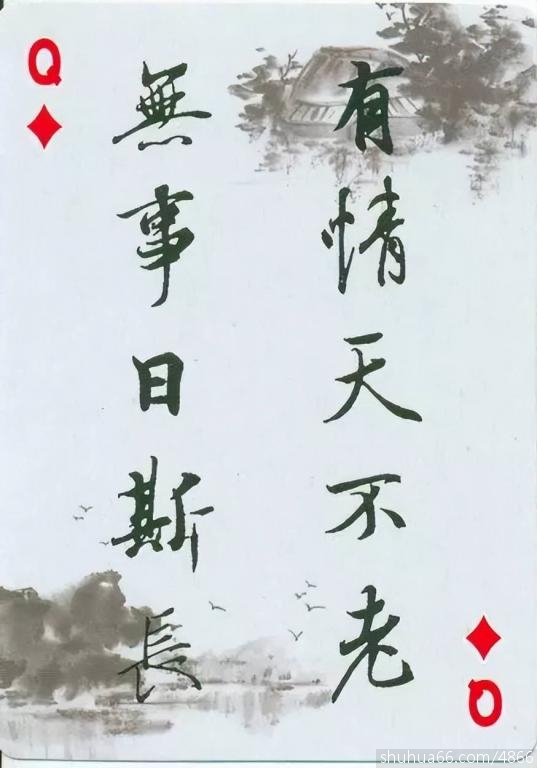 Q
有情天不老
無事日斯長
Q
shuhua66.com/4866